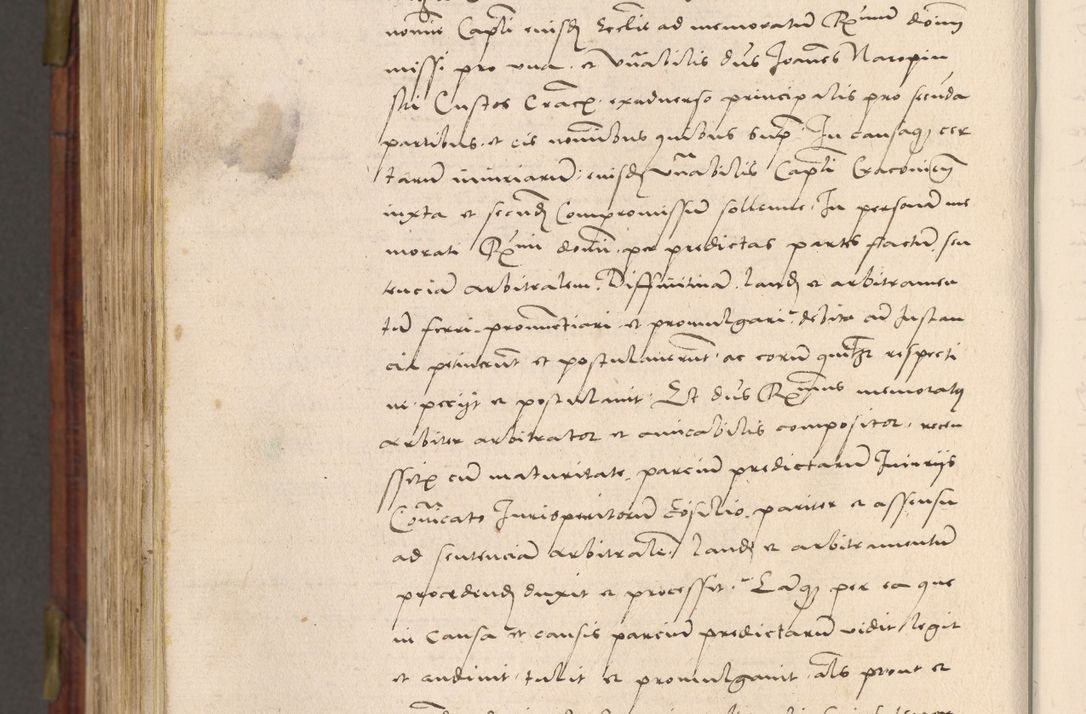 nomine Capli eiusdē Ecclie ad memoratū Rx̄mum domī
missi pro vna et Vn̄abilis dn̄s Joannes Naropin
ski Custos Cracx̄ exaduerso principalis pro secūda
partibus et eis nominibus quibus supx̄ In causaqʒ cer
tarū iniuriarū eiusdē vn̄abilis Capli Craconieñ
iuxta et secundū Compromissum sollemne In personā me
morati Rx̄mi domini per predictas partes factū sen
tenciā arbitralem Diffinitiuā laudū et arbitramen
tū ferri pronunctiari et promulgari debita cū Instan
cia petiuerūt et postulauerūt ac eorū quilibet respecti
ue peciit et postulauit Et dn̄s Rx̄mus memoratus
arbiter arbitrator et amicabilis compositor recen
sitx̄ cū maturitate parciū predictarū Iniuriis
Coīcato Jurisperitorū cōsilio pariter et assensu
ad sentenciā arbitralē laudū et arbitramentū
procedendū duxit et processit Eāqʒ per ea que
in Causa et causis parciū predictarū vidit legit
et audiuit tulit et promulgauit als prout et